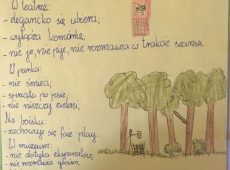 W teatrze:
- elegancko się ubiera,
- wyłącza komórkę,
- nie je, nie pije, nie rozmawia w trakcie seansu.
W parku:
- nie śmieci,
- sprząta po psie,
- nie niszczy zieleni.
Na boisku:
- zachowuje się fair play.
W muzeum:
- nie dotyka eksponatów,
- nie rozmawia głośno.